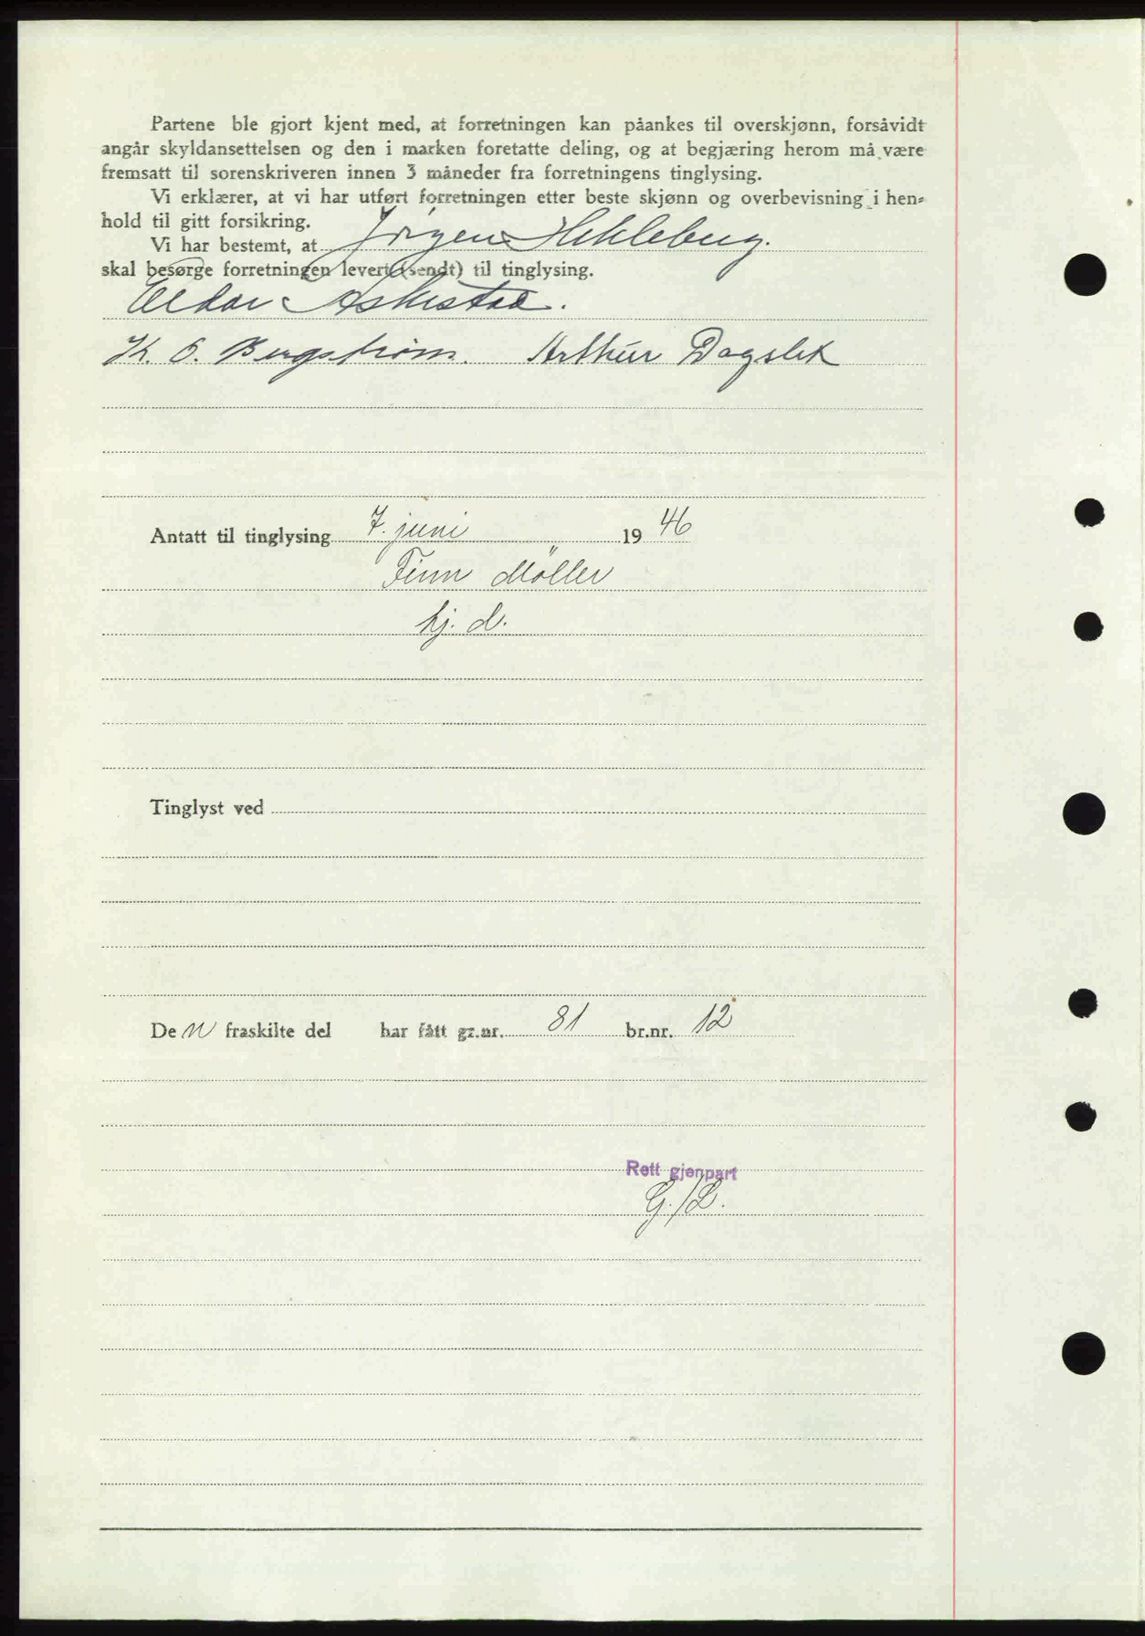 Partene ble gjort kjent med, at forretningen kan påankes til overskjønn, forsåvidt
angår skyldansettelsen og den i marken foretatte deling, og at begjæring herom må være
fremsatt til sorenskriveren innen 3 måneder fra forretningens tinglysing.
Vi erklærer, at vi har utført forretningen etter beste skjønn og overbevisning i hen-
hold til gitt forsikring.
Vi har bestemt, at Jörgen Hekleberg.
skal besørge forretningen levert (sendt) til tinglysing.
Askestad.
K. O. Bergstrøm. Arthur Dagslet
Antatt til tinglysing 7. juni 1946
Finn Möller
hj. d.
Tinglyst ved
Den fraskilte del har fått gr.nr. 81 br.nr. 12
Rett gjenpart
G./L.